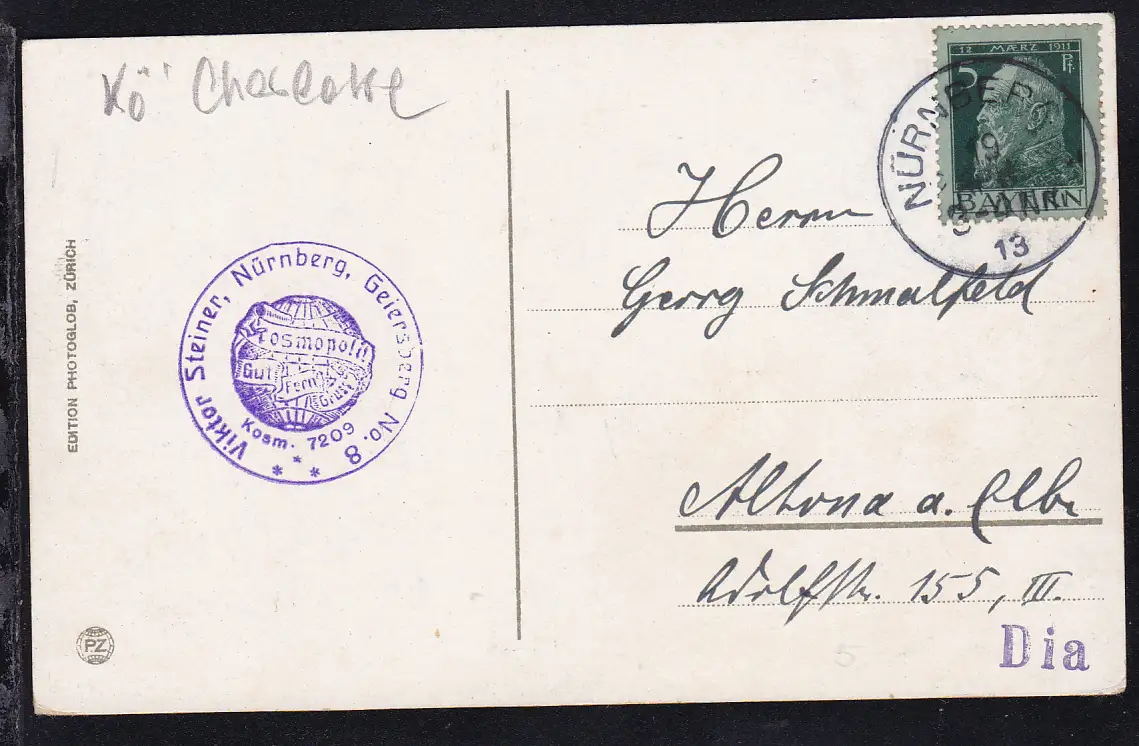 Kö' Charlotte
12 MÆRZ 1911
5 Pf.
BAYERN
NÜRNBERG
19
13
Herrn
Georg Schmalfeld
Altona a. Elbe
Adolfstr. 155, III.
Dia
EDITION PHOTOGLOB, ZÜRICH
Viktor Steiner, Nürnberg, Geiersberg No. 8
Kosmopolit
Gut Fern Gruss
Kosm. 7209
PZ
5